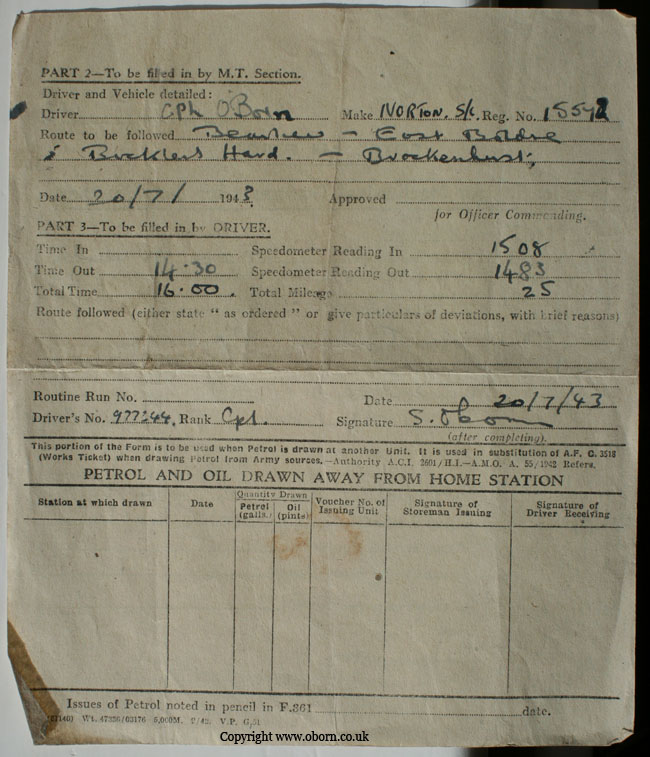 PART 2—To be filled in by M.T. Section.
Driver and Vehicle detailed:
Driver Cpl OBorn Make NORTON. S/C. Reg. No. 15572
Route to be followed Beaulieu - East Boldre
& Bucklers Hard. - Brockenhurst,
Date 20/7/ 1943 Approved
for Officer Commanding.
PART 3—To be filled in by DRIVER.
Time In Speedometer Reading In 1508
Time Out 14.30 Speedometer Reading Out 1483
Total Time 16.00. Total Mileage 25
Route followed (either state “ as ordered ” or give particulars of deviations, with brief reasons)
Routine Run No. Date 20/7/43
Driver's No. 977244. Rank Cpl. Signature S. Oborn
(after completing).
This portion of the Form is to be used when Petrol is drawn at another Unit. It is used in substitution of A.F. G. 3518
(Works Ticket) when drawing Petrol from Army sources.—Authority A.C.I. 2601/H.I.—A.M.O. A. 55/1942 Refers.
PETROL AND OIL DRAWN AWAY FROM HOME STATION
Station at which drawn Date Quantity Drawn Petrol (galls.) Oil (pints) Voucher No. of Issuing Unit Signature of Storeman Issuing Signature of Driver Receiving
Issues of Petrol noted in pencil in F.361 date.
Wt. 47356/03176 V.P.
Copyright www.oborn.co.uk